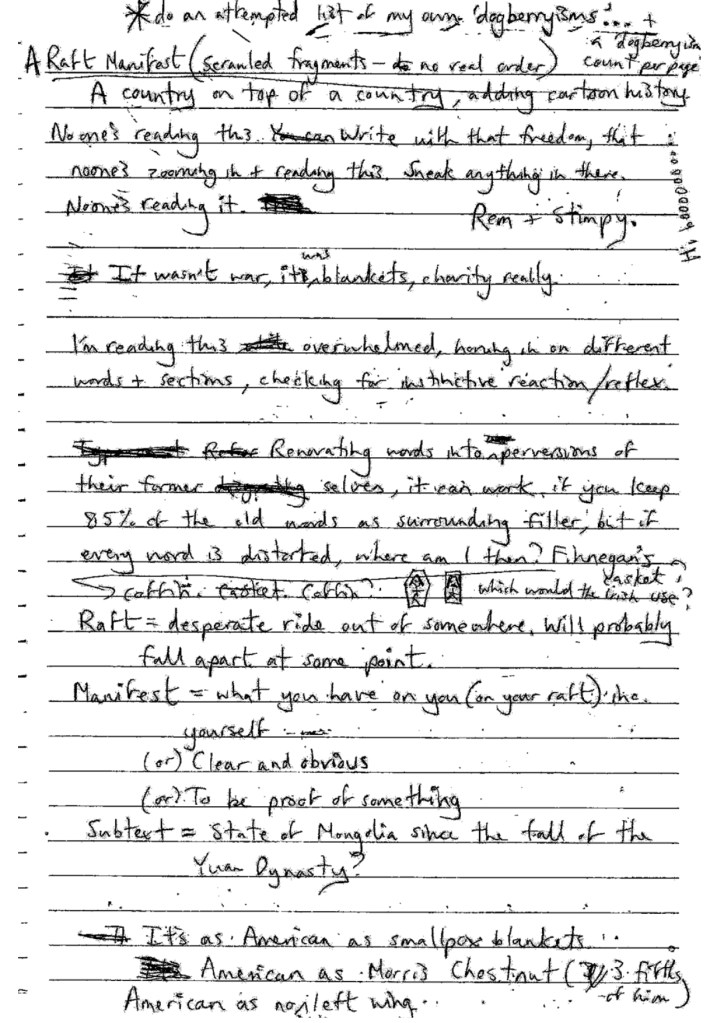 *do an attempted list of my own 'dogberryisms'... +
a dogberryism
count per page
A Raft Manifest (scrambled fragments - no real order)
A country on top of a country, adding cartoon history
No one's reading this. Write with that freedom, that
noone's zooming in + reading this. Sneak anything in there.
Noone's reading it.
Ren + Stimpy.
It wasn't war, it was blankets, charity really.
I'm reading this overwhelmed, honing in on different
words + sections, checking for instinctive reaction/reflex.
Renovating words into perversions of
their former selves, it can work, if you keep
85% of the old words as surrounding filler, but if
every word is distorted, where am I then? Finnegan's
casket?
coffin. Casket. Coffin? which would the Irish use?
Raft = desperate ride out of somewhere. Will probably
fall apart at some point.
Manifest = what you have on you (on your raft) inc.
yourself
(or) Clear and obvious
(or) To be proof of something
Subtext = State of Mongolia since the fall of the
Yuan Dynasty?
It's as American as smallpox blankets
American as Morris Chestnut (3 fifths
of him)
American as no left wing..